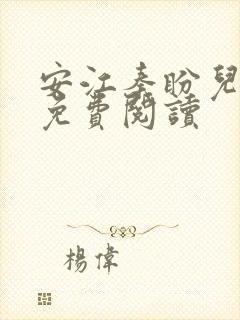 安江秦盼兒
免費閱讀
楊偉